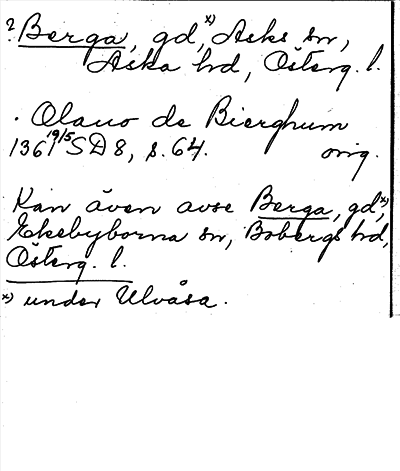 ? Berga, gd,ˣ⁾ Asks sn,
Aska hd, Österg. l.
. Olauo de Bierghum
1361 19/5 SD 8, s. 64. orig.
Kan även avse Berga, gd,ˣ⁾
Ekebyborna sn, Bobergs hd,
Österg. l.
x) under Ulvåsa.